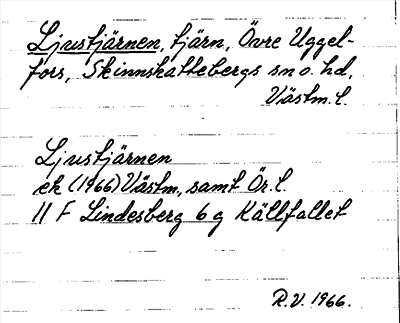 Ljustjärnen, tjärn, Övre Uggel-
fors, Skinnskattebergs sn o. hd,
Västm. l.
Ljustjärnen
ek (1966) Västm., samt Ör. l.
11 F Lindesberg 6 g Källfallet
R.V. 1966.